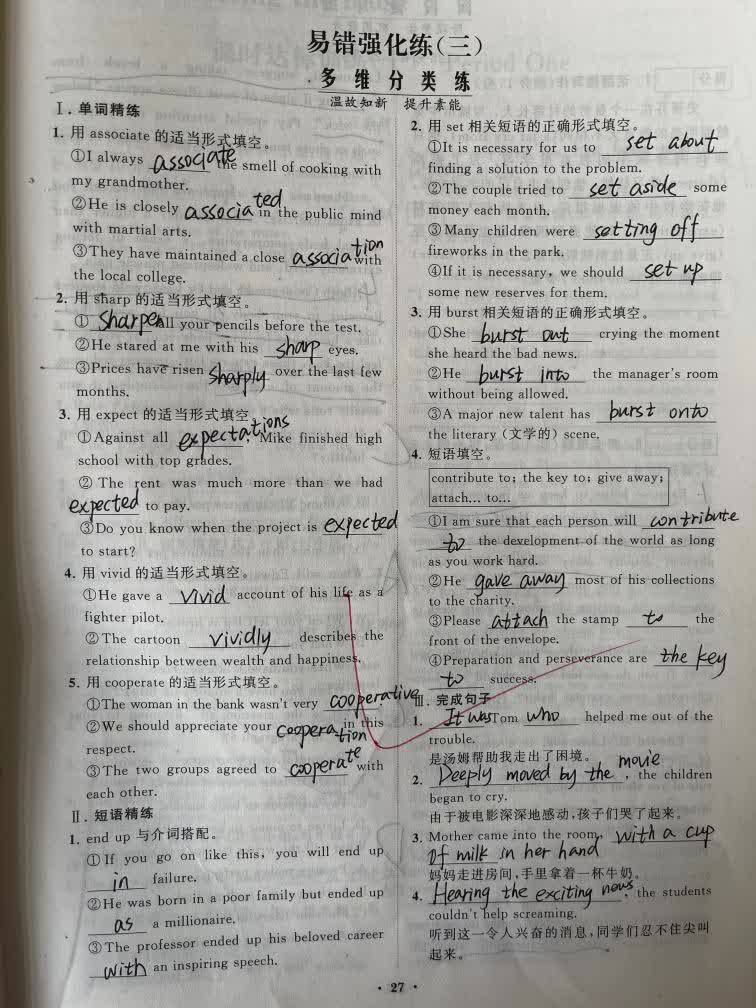 易错强化练(三)
多维分类练
温故知新 提升素能
Ⅰ. 单词精练
1. 用 associate 的适当形式填空。
①I always associate the smell of cooking with
my grandmother.
②He is closely associated in the public mind
with martial arts.
③They have maintained a close association with
the local college.
2. 用 sharp 的适当形式填空。
① Sharpen all your pencils before the test.
②He stared at me with his sharp eyes.
③Prices have risen sharply over the last few
months.
3. 用 expect 的适当形式填空。
①Against all expectations, Mike finished high
school with top grades.
② The rent was much more than we had
expected to pay.
③Do you know when the project is expected
to start?
4. 用 vivid 的适当形式填空。
①He gave a vivid account of his life as a
fighter pilot.
②The cartoon vividly describes the
relationship between wealth and happiness.
5. 用 cooperate 的适当形式填空。
①The woman in the bank wasn't very cooperative.
②We should appreciate your cooperation in this
respect.
③The two groups agreed to cooperate with
each other.
Ⅱ. 短语精练
1. end up 与介词搭配。
①If you go on like this, you will end up
in failure.
②He was born in a poor family but ended up
as a millionaire.
③The professor ended up his beloved career
with an inspiring speech.
2. 用 set 相关短语的正确形式填空。
①It is necessary for us to set about
finding a solution to the problem.
②The couple tried to set aside some
money each month.
③Many children were setting off
fireworks in the park.
④If it is necessary, we should set up
some new reserves for them.
3. 用 burst 相关短语的正确形式填空。
①She burst out crying the moment
she heard the bad news.
②He burst into the manager's room
without being allowed.
③A major new talent has burst onto
the literary (文学的) scene.
4. 短语填空。
contribute to; the key to; give away;
attach... to...
①I am sure that each person will contribute
to the development of the world as long
as you work hard.
②He gave away most of his collections
to the charity.
③Please attach the stamp to the
front of the envelope.
④Preparation and perseverance are the key
to success.
Ⅲ. 完成句子
1. It was Tom who helped me out of the
trouble.
是汤姆帮助我走出了困境。
2. Deeply moved by the movie, the children
began to cry.
由于被电影深深地感动,孩子们哭了起来。
3. Mother came into the room, with a cup
of milk in her hand
妈妈走进房间,手里拿着一杯牛奶。
4. Hearing the exciting news, the students
couldn't help screaming.
听到这一令人兴奋的消息,同学们忍不住尖叫
起来。
· 27 ·